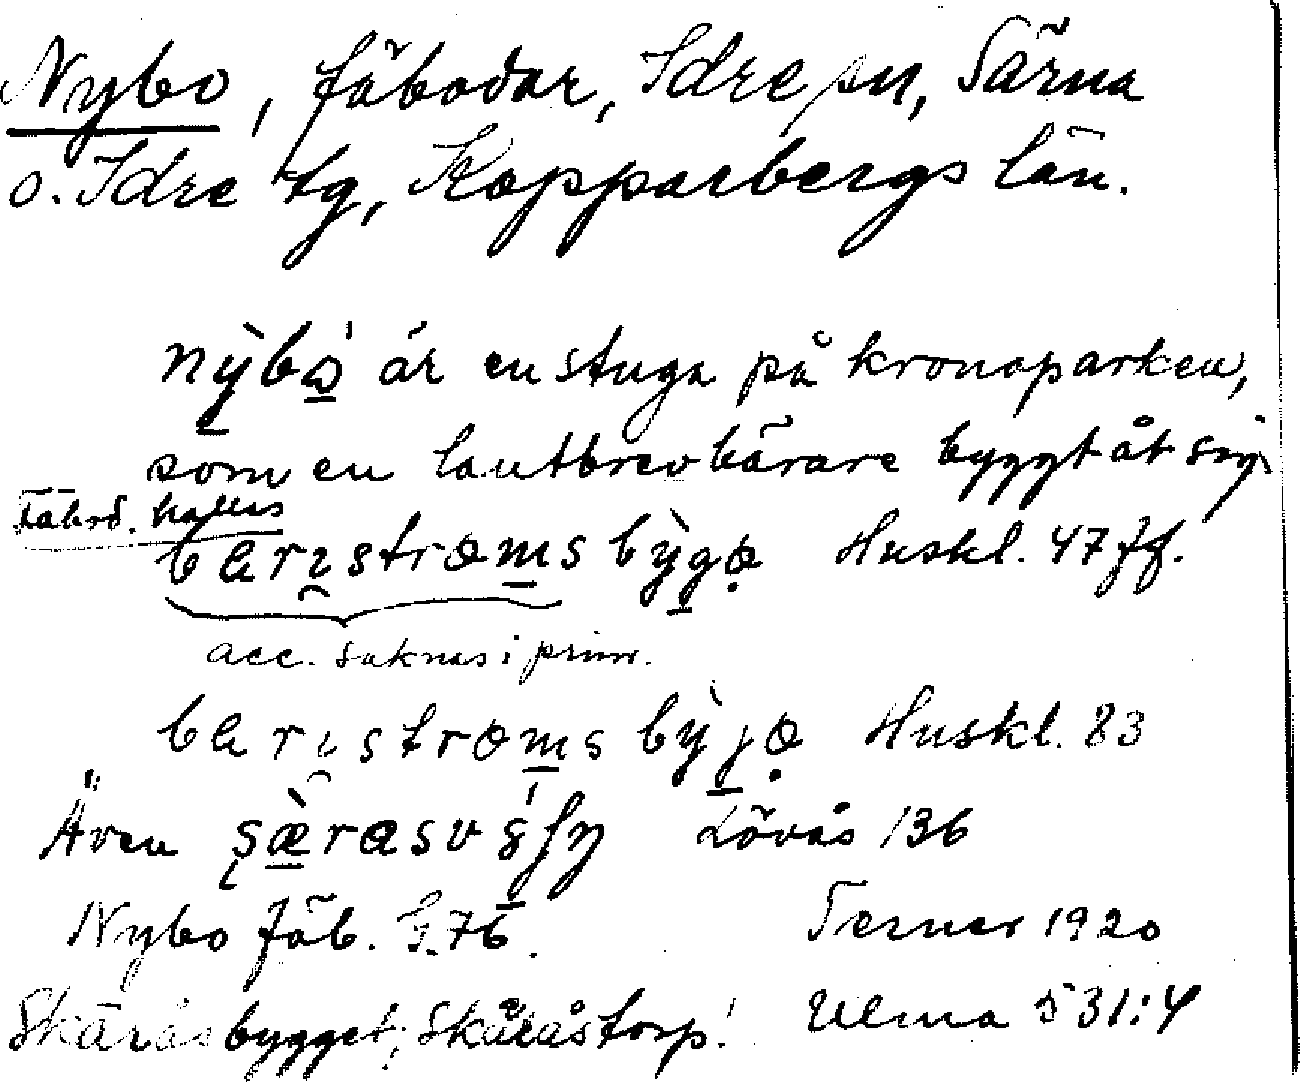 Nybo, fäbodar, Idre sn, Särna
o. Idre tg, Kopparbergs län.
nỳbó är en stuga på kronoparken,
som en lantbrevbärare byggt åt sig
kallas
barıstrœms bỳgə Huskl. 47 ff.
acc. saknas i prim.
barıstrœms bỳjə Huskl. 83
Även Lövås 136
Nybo fäb. G. 76. Terner 1920
Skäråsbygget, Skåråstorp! Ulma 531:4